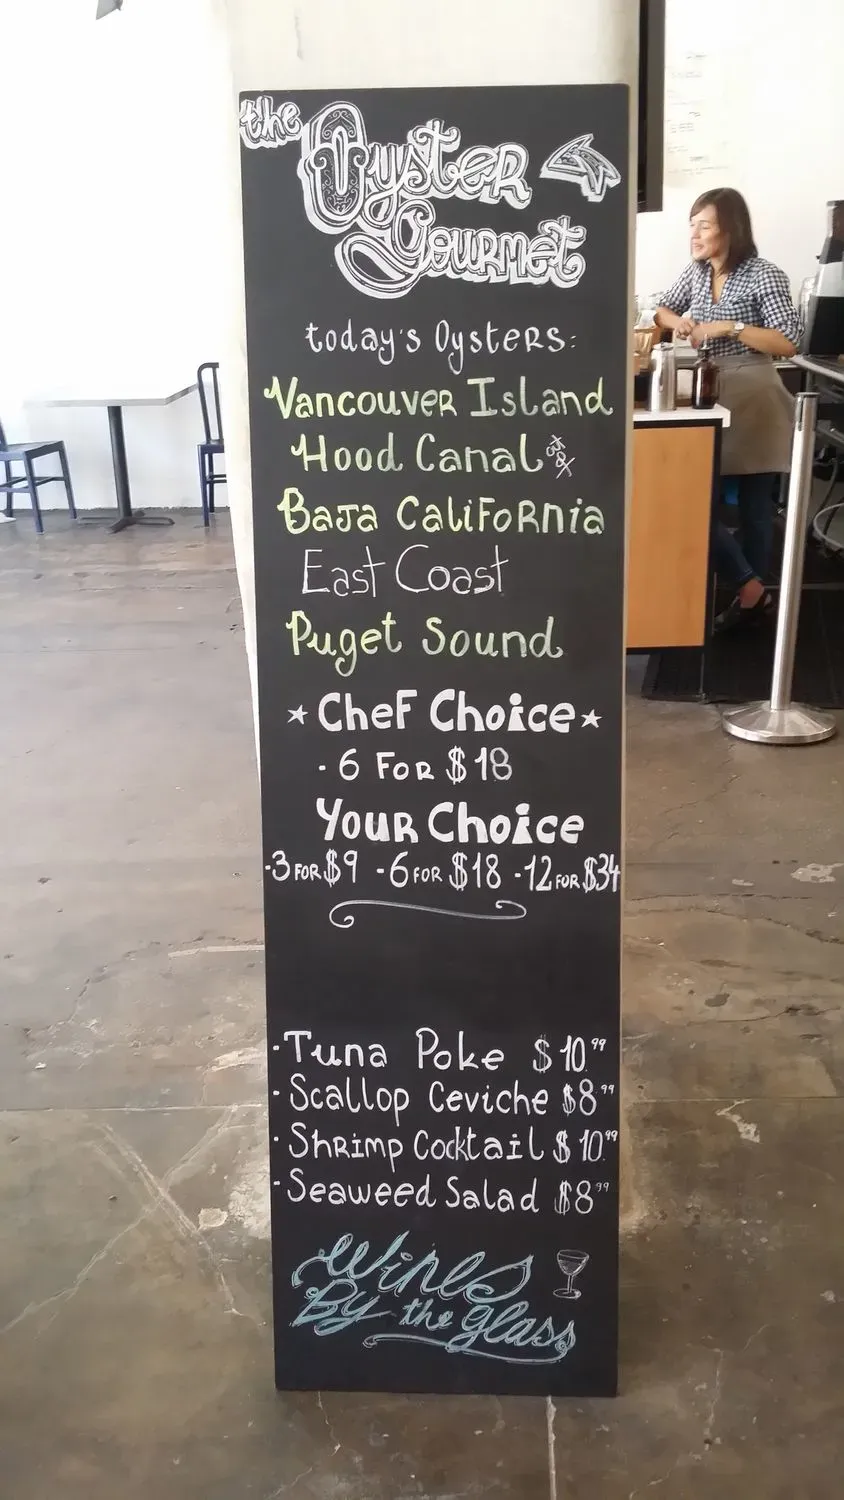 the Oyster
Gourmet
today's Oysters:
Vancouver Island
Hood Canal
Baja California
East Coast
Puget Sound
Chef Choice
- 6 FOR $18
Your Choice
-3 FOR $9 -6 FOR $18 -12 FOR $34
- Tuna Poke $10.99
- Scallop Ceviche $8.99
- Shrimp Cocktail $10.99
- Seaweed Salad $8.99
Wines
By the glass